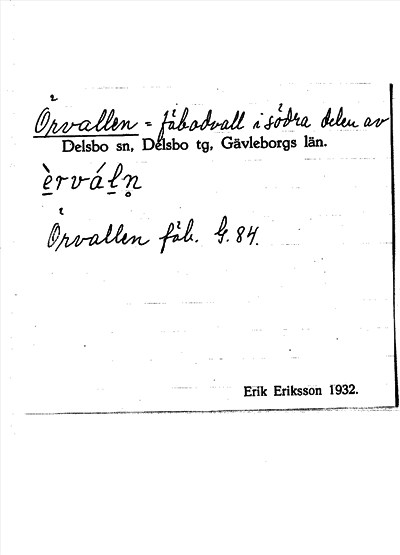 Örvallen = fäbodvall i södra delen av
Delsbo sn, Delsbo tg, Gävleborgs län.
è̱rváḻn̥
Örvallen fäb. G. 84.
Erik Eriksson 1932.